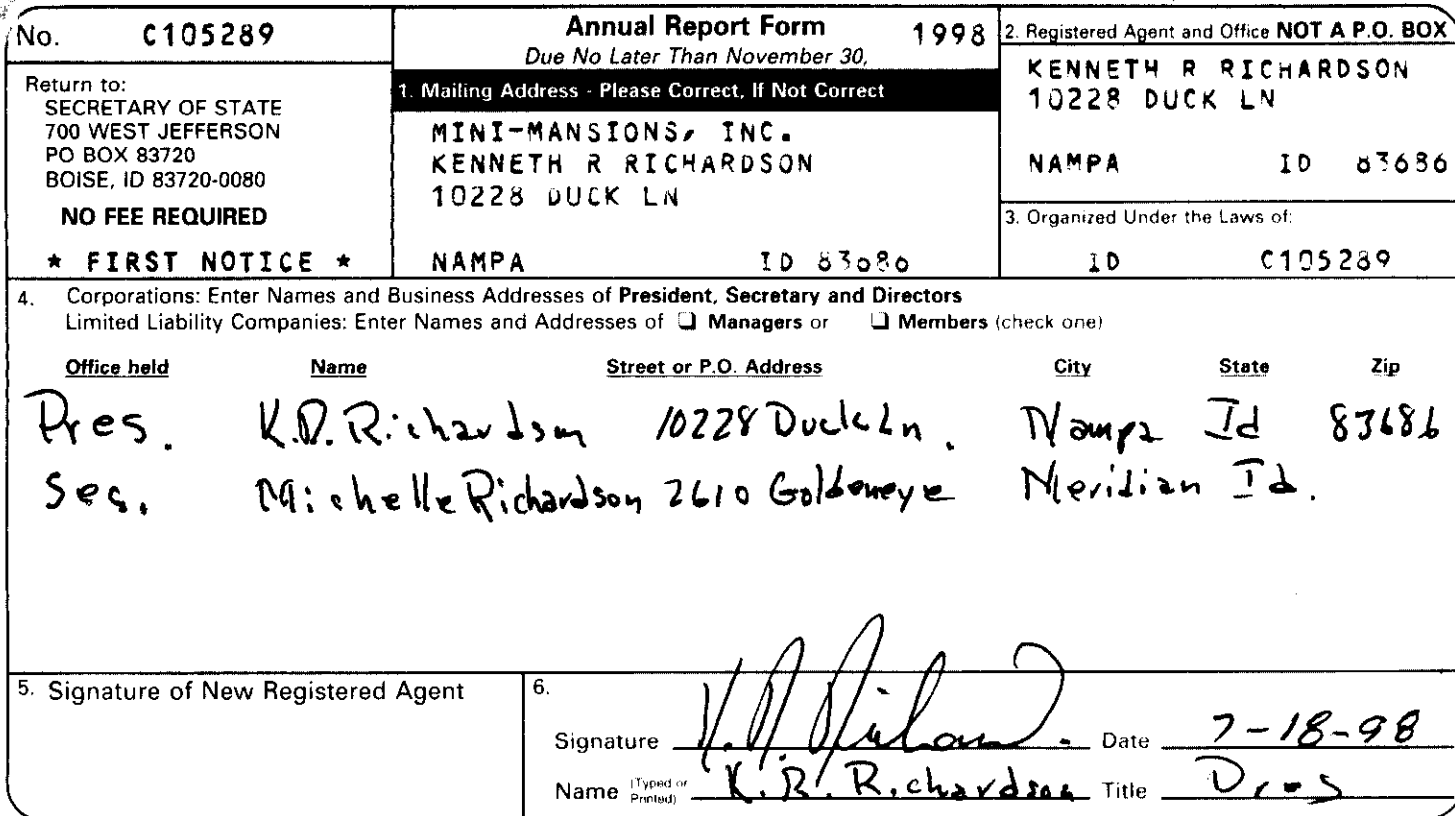 No. C105289
Return to:
SECRETARY OF STATE
700 WEST JEFFERSON
PO BOX 83720
BOISE, ID 83720-0080
NO FEE REQUIRED
* FIRST NOTICE *
Annual Report Form 1998
Due No Later Than November 30,
1. Mailing Address - Please Correct, If Not Correct
MINI-MANSIONS, INC.
KENNETH R RICHARDSON
10228 DUCK LN
NAMPA ID 83686
2. Registered Agent and Office NOT A P.O. BOX
KENNETH R RICHARDSON
10228 DUCK LN
NAMPA ID 83686
3. Organized Under the Laws of:
ID C105289
4. Corporations: Enter Names and Business Addresses of President, Secretary and Directors
Limited Liability Companies: Enter Names and Addresses of ❏ Managers or ❏ Members (check one)
Office held Name Street or P.O. Address City State Zip
Pres. K.R. Richardson 10228 Duck Ln. Nampa Id 83686
Sec. Michelle Richardson 2610 Goldeneye Meridian Id.
5. Signature of New Registered Agent
6.
Signature K. R. Richardson Date 7-18-98
Name (Typed or Printed) K. R. Richardson Title Pres